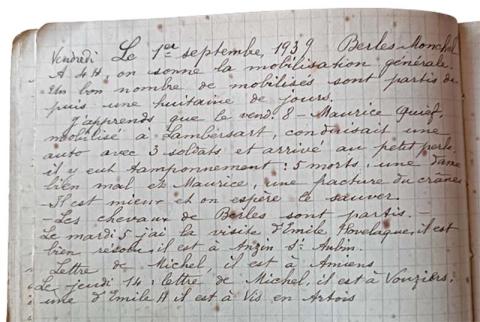 Vendredi Le 1er septembre 1939 Berles-Monchel
A 4H, on sonne la mobilisation générale.
Un bon nombre de mobilisés sont partis de
puis une huitaine de jours.
J'apprends que le vend. 8 - Maurice Quief,
mobilisé à Lambersart, conduisait une
auto avec 3 soldats et arrivé au petit
il y eut tamponnement : 5 morts, une dame
bien mal et Maurice, une fracture du crâne
- Il est mieux et on espère le sauver.
- Les chevaux de Berles sont partis. -
Le mardi 5 j'ai la visite d'Emile il est
bien résolu, il est à Anzin St Aubin.
Lettre de Michel, il est à Amiens
- Le jeudi 14 : lettre de Michel, il est à Vouziers ;
une d'Emile H il est à Vis en Artois